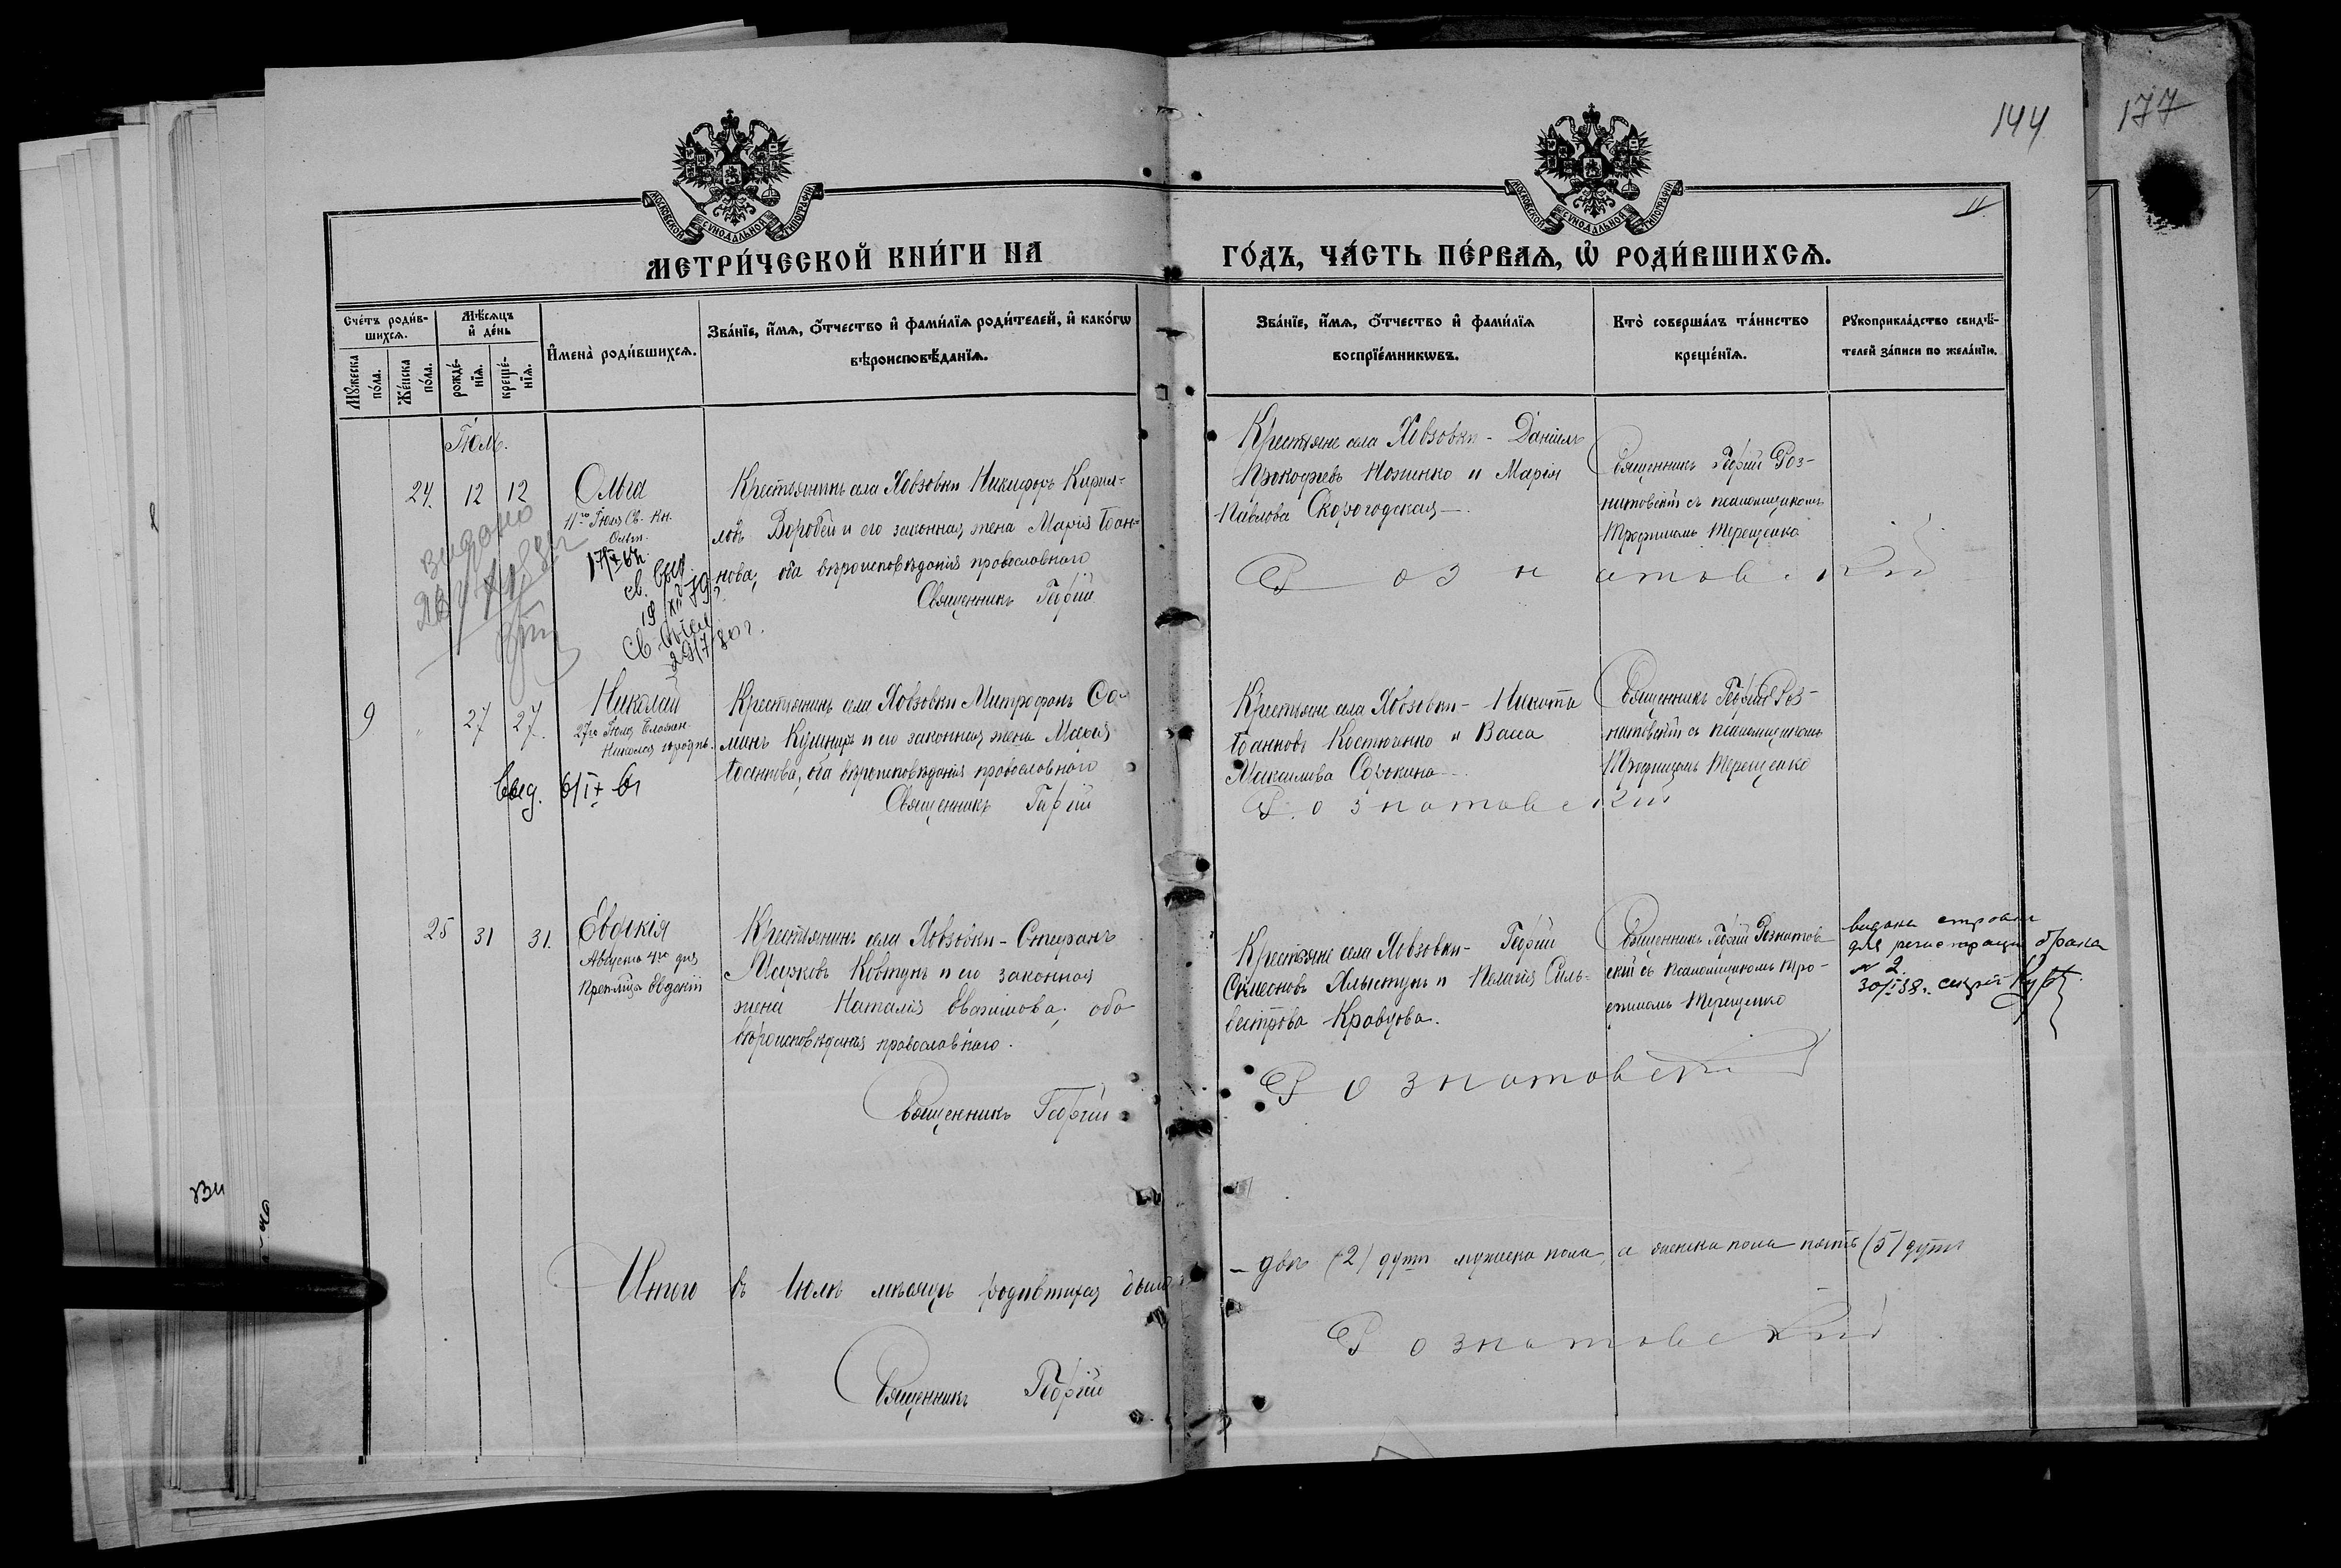 144
177
МОСКОВСКОЙ СѴНОДАЛЬНОЙ ТИПОГРАФІИ
МОСКОВСКОЙ СѴНОДАЛЬНОЙ ТИПОГРАФІИ
МЕТРИ́ЧЕСКОЙ КНИ́ГИ НА ГО́ДЪ, ЧА́СТЬ ПЕ́РВАЯ, Ѡ РОДИ́ВШИХСЯ.
Сче́тъ роди́в-
шихся.
Мꙋжеска по́ла.
Же́нска по́ла.
Мѣ́сяцъ
и де́нь
рожде́-
нїя.
креще́-
нїя.
Имена̀ роди́вшихся.
Зва́нїе, и́мя, о́тчество и фами́лїя роди́телей, и како́гѡ
вѣроисповѣ́данїя.
Зва́нїе, и́мя, о́тчество и фами́лїя
воспрїе́мникѡвъ.
Кто̀ соверша́лъ та́инство
креще́нїя.
Рꙋкоприкла́дство свидѣ́-
телей за́писи по жела́нїю.
Іюль.
24. 12 12
Ольга
11го Іюля Св. Кн.
Ольги.
видано
17/IX 64
св. выд.
19/XII 79
29/7/80 г.
Крестьянинъ села Яовзовки Никифоръ Кирил-
ловъ Воробей и его законная жена Марія Іоан-
нова, оба вѣроисповѣданія православнаго
Священникъ Георгій
Крестьяне села Яовзовки - Даніилъ
Прокофіевъ Ноженко и Марія
Павлова Скорогодская.
Рознатовскій
Священникъ Георгій Роз-
натовскій съ псаломщикомъ
Трофимомъ Терещенко
9 " 27 27.
Николай
27го Іюля Блажен.
Николая юродив.
Выд. 6/IX
Крестьянинъ села Яовзовки Митрофанъ Са-
винъ Кушниръ и его законная жена Марія
Іоаннова, оба вѣроисповѣданія православнаго
Священникъ Георгій
Крестьяне села Яовзовки - Никита
Іоанновъ Костюченко и Васса
Максимова Сорокина
Рознатовскій
Священникъ Георгій Роз-
натовскій съ псаломщикомъ
Трофимомъ Терещенко
25 31 31.
Евдокія
Августа 4го дня
Прп-муца Евдокіи
Крестьянинъ села Яовзовки - Стефанъ
Марковъ Ковтунъ и его законная
жена Наталія Евфимова; оба
вѣроисповѣданія православнаго.
Священникъ Георгій
Крестьяне села Яовзовки - Георгій
Симеоновъ Хлыстунъ и Пелагія Силь-
вестрова Кравцова.
Рознатовскій
Священникъ Георгій Рознатов-
скій съ псаломщикомъ Тро-
фимомъ Терещенко
видана
для регистрации брака
№ 2
30/I 38 г. секрет
Итого въ Іюлѣ мѣсяцѣ родившихся было - двѣ (2) души мужеска пола, а женска пола пять (5) душъ
Священникъ Георгій Рознатовскій